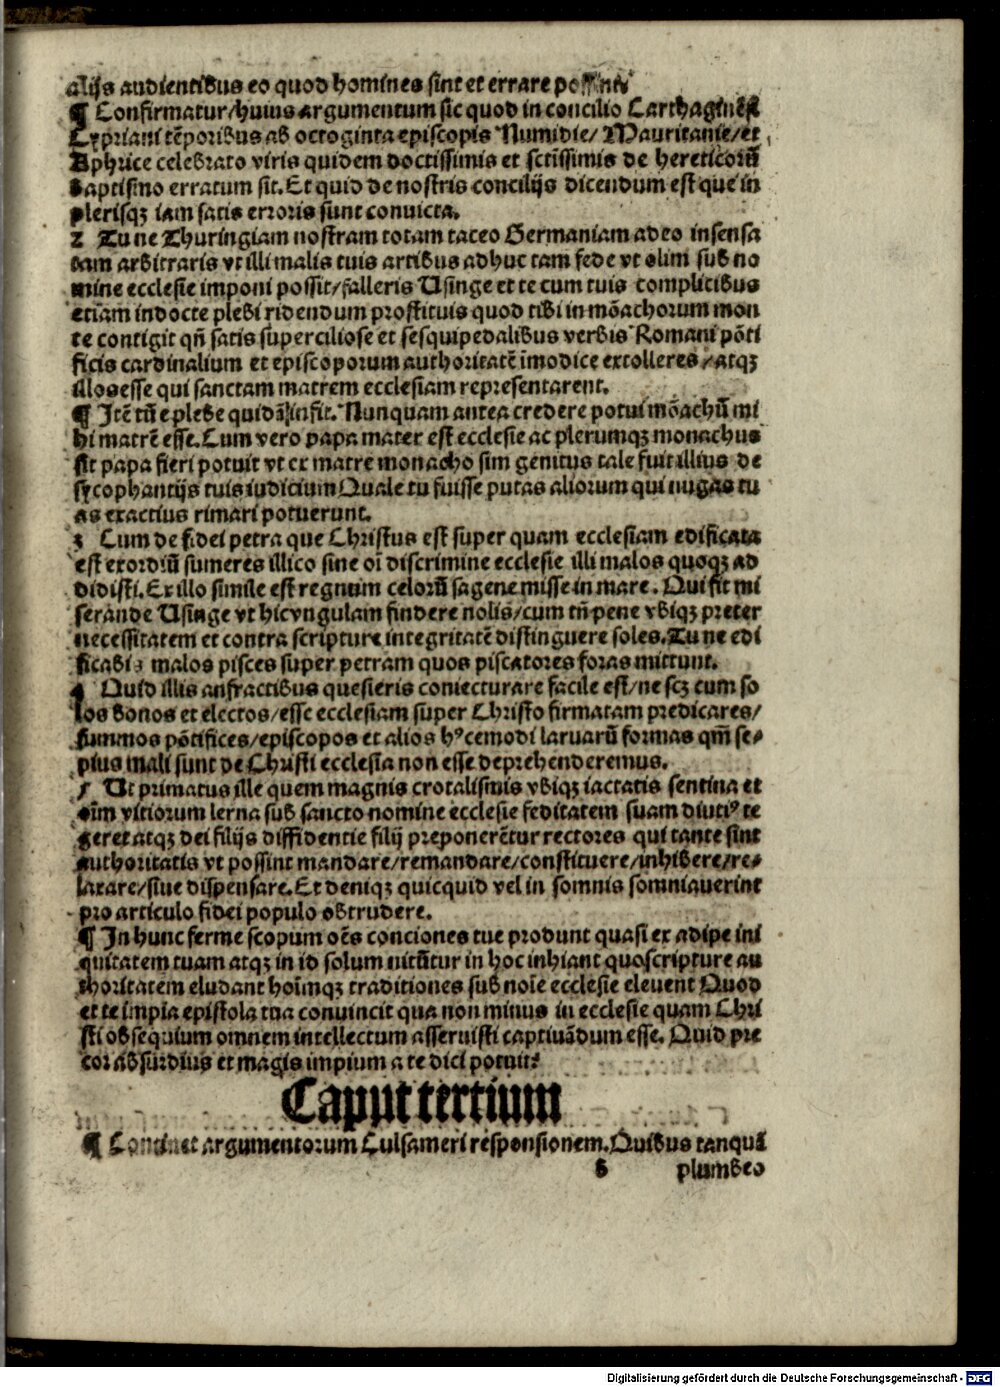 alijs audientibus eo quod homines sint et errare possint
¶ Confirmatur/huius argumentum sic quod in concilio Carthaginēsi
Cypriani tēporibus ab octoginta episcopis Numidie/ Mauritanie/et
Aphrice celebrato viris quidem doctissimis et sctissimis de hereticorū
baptismo erratum sit. Et quid de nostris concilijs dicendum est que in
plerisqꝫ iam satis erroris sunt convicta.
2 Tu ne Thuringiam nostram totam taceo Germaniam adeo insensa
tam arbitraris vt illi malis tuis artibus adhuc tam fede vt olim sub no
mine ecclesie imponi possit/falleris Usinge et te cum tuis complicibus
etiam indocte plebi ridendum prostituis quod tibi in mōachorum mon
te contigit qn̄ satis superciliose et sesquipedalibus verbis Romani pōti
ficis cardinalium et episcoporum authoritatē īmodice extolleres/atqꝫ
illos esse qui sanctam matrem ecclesiam representarent.
¶ Itē tū e plebe quidā infit. Nunquam antea credere potui mōachū mi
hi matrē esse. Cum vero papa mater est ecclesie ac plerumqꝫ monachus
sit papa fieri potuit vt ex matre monacho sim genitus tale fuit illius de
sycophantijs tuis iudicium Quale tu fuisse putas aliorum qui nugas tu
as exactius rimari potuerunt.
3 Cum de fidei petra que Christus est super quam ecclesiam edificata
est exordiū sumeres illico sine oī discrimine ecclesie illi malos quoqꝫ ad
didisti. Ex illo simile est regnum celorū sagene misse in mare. Qui fit mi
serande Usinge vt hic vngulam findere nolis/cum tn̄ pene vbiqꝫ preter
necessitatem et contra scripture integritatē distinguere soles. Tu ne edi
ficabis malos pisces super petram quos piscatores foras mittunt.
4 Quid illis anfractibus quesieris coniecturare facile est/ne scꝫ cum so
los bonos et electos/esse ecclesiam super Christo firmatam predicares/
summos pōtifices/episcopos et alios hꝰcemodi laruarū formas qm̄ se/
pius mali sunt de Christi ecclesia non esse deprehenderemus.
5 Ut primatus ille quem magnis crotalismis vbiqꝫ iactatis sentina et
oīm vitiorum lerna sub sancto nomine ecclesie feditatem suam diutiꝰ te
geret atqꝫ dei filijs diffidentie filij preponerētur rectores qui tante sint
authoritatis vt possint mandare/remandare/constituere/inhibere/re/
laxare/siue dispensare. Et deniqꝫ quicquid vel in somnis somniauerint
pro articulo fidei populo obtrudere.
¶ In hunc ferme scopum oēs conciones tue produnt quasi ex adipe ini
quitatem tuam atqꝫ in id solum nitūtur in hoc inhiant quo scripture au
thoritatem eludant hoīmqꝫ traditiones sub noīe ecclesie elevent Quod
et te impia epistola tua convincit qua non minus in ecclesie quam Chri
sti obsequium omnem intellectum asseruisti captiuādum esse. Quid pre
cor absurdius et magis impium a te dici potuit?
Caput tertium
¶ Continet argumentorum Culsameri responsionem. Quibus tanquā
b plumbeo
Digitalisierung gefördert durch die Deutsche Forschungsgemeinschaft - DFG